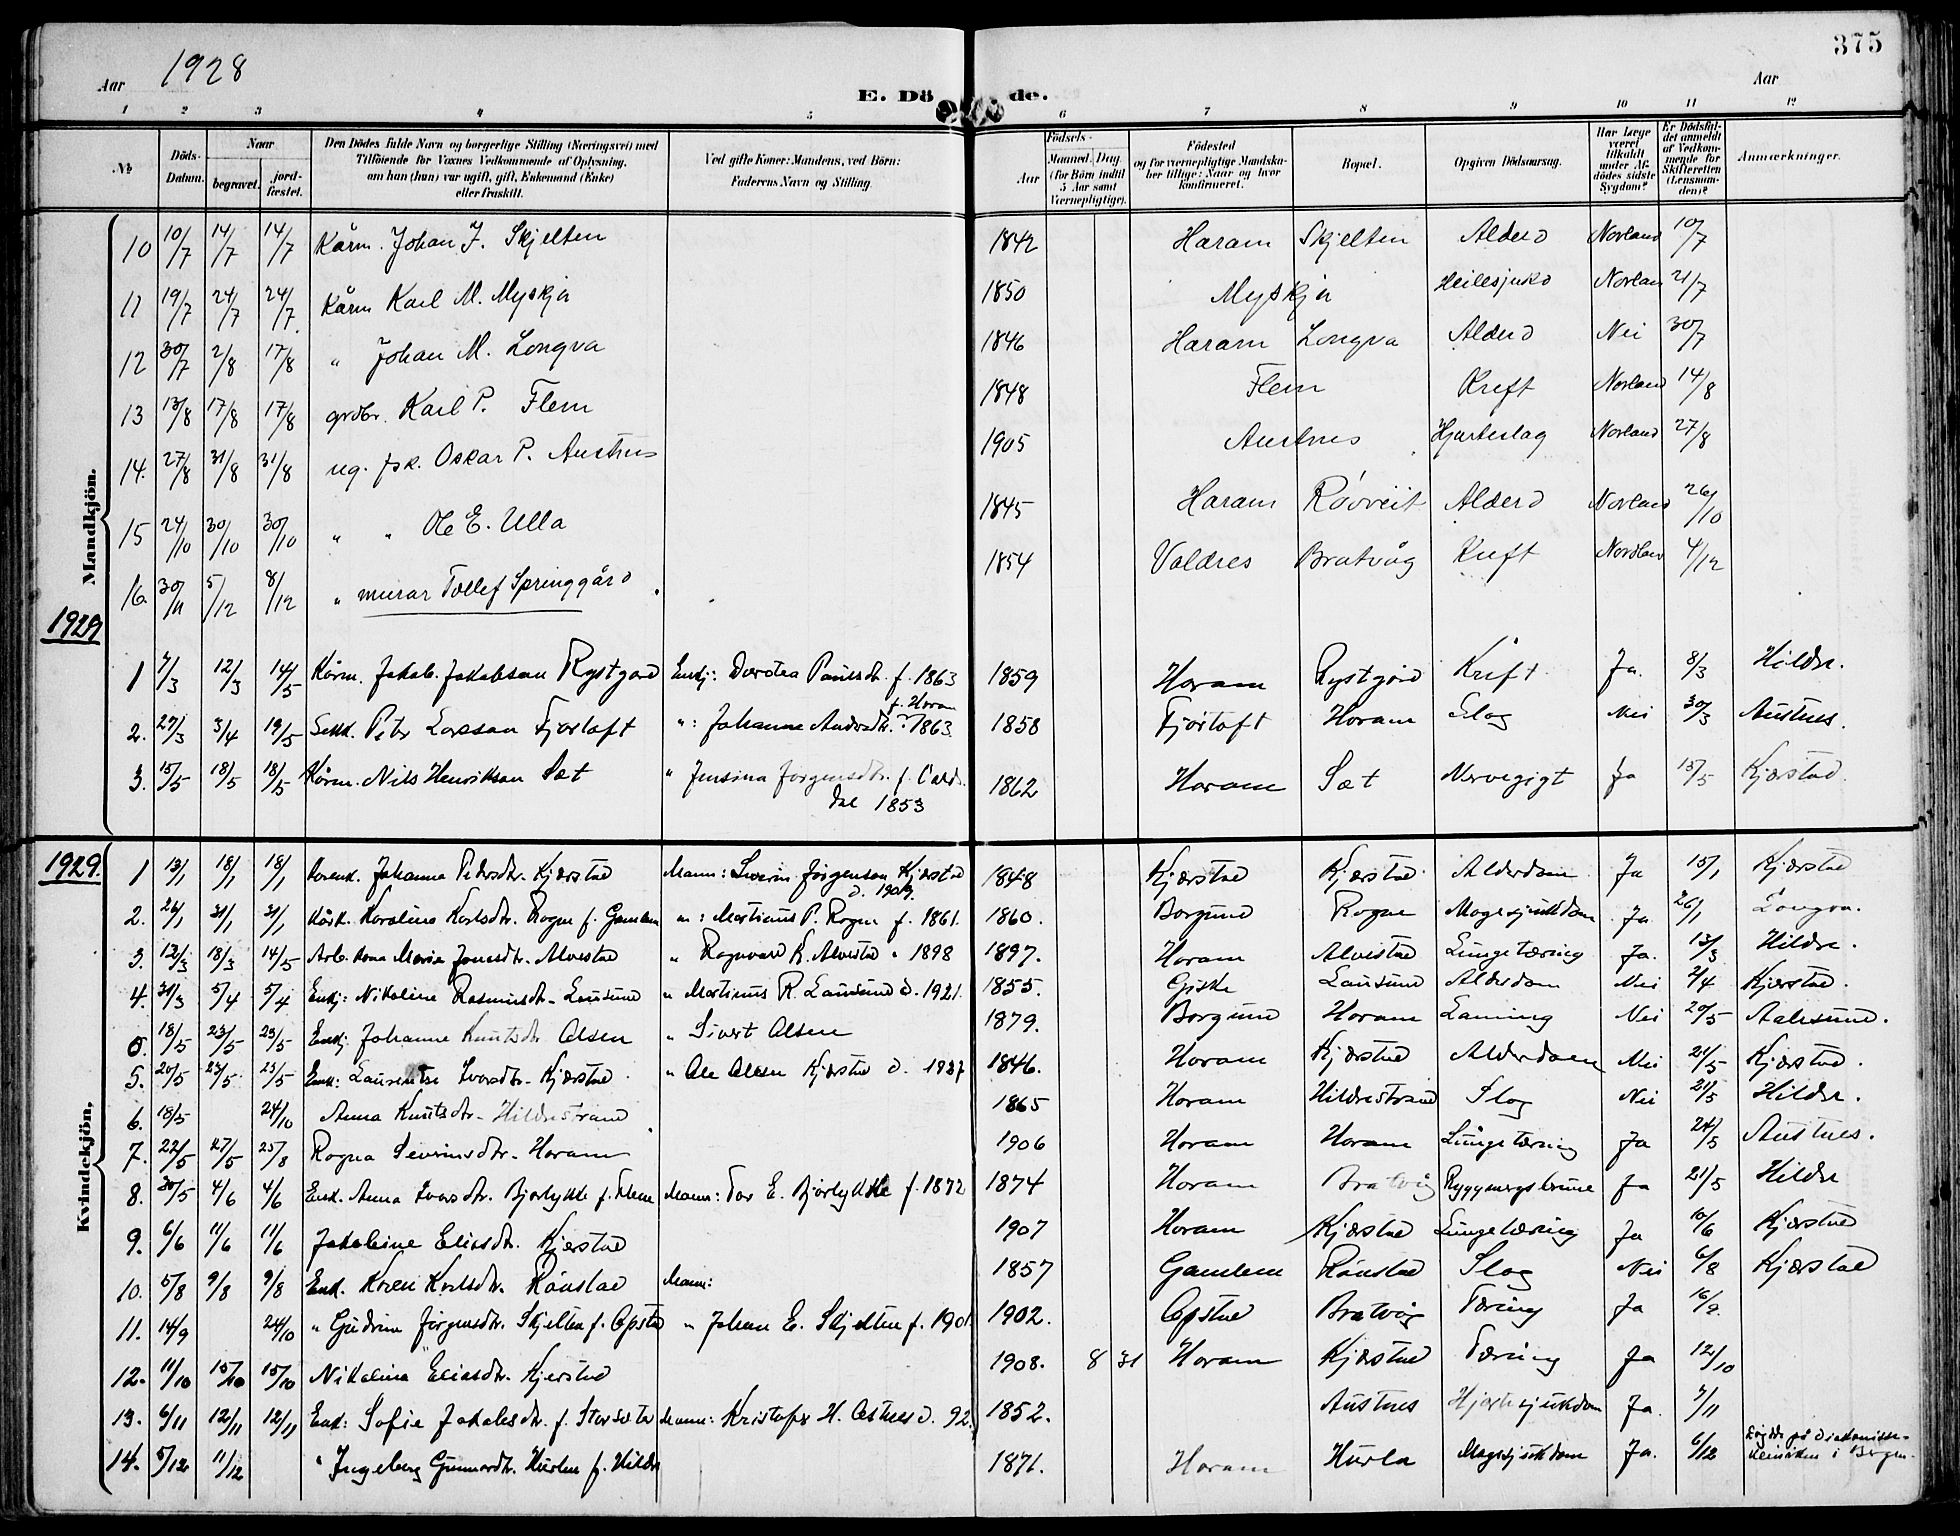 375
Aar 1928 E. Dö de. Aar
1 2 3 4 5 6 7 8 9 10 11 12
№ Döds-Datum. Naar begravet. jord-fæstet. Den Dödes fulde Navn og borgerlige Stilling (Næringsvei) med Tilföiende for Voxnes Vedkommende af Oplysning, om han (hun) var ugift, gift, Enkemand (Enke) eller fraskilt. Ved gifte Koner: Mandens, ved Börn: Faderens Navn og Stilling. Aar Födsels- Maaned. Dag. (for Börn indtil 5 Aar samt Værnepligtige). Födested og for værnepligtige Mandskaber tillige: Naar og hvor konfirmeret. Bopæl. Opgiven Dödsaarsag. Har Læge været tilkaldt under Afdödes sidste Sygdom? Er Dödsfaldet anmeldt af Vedkommende for Skifteretten (Lensmanden)? Anmærkninger.
Mandkjön.
10 10/7 14/7 14/7 Kårm. Johan J. Skjelten 1842 Haram Skjelten Alderd Norland 10/7
11 19/7 24/7 24/7 Kårm Karl M. Myskja 1850 Myskja Heilesjukd Norland 21/7
12 30/7 2/8 17/8 " Johan M. Longva 1846 Haram Longva Alderd Nei 30/7
13 13/8 17/8 17/8 grdbr. Karl P. Flem 1848 Flem Kreft Norland 14/8
14. 27/8 31/8 31/8 ug. fsk. Oskar P. Austnes 1905 Austnes Hjarteslag Norland 27/8
15 24/10 30/10 30/10 " " Ole E. Ulla 1845 Haram Rövreit Alderd Norland 26/10
16. 30/11 5/12 8/12 " murar Tollef Springgård 1854 Valdres Bratvåg Kreft Nordland 4/12
1929
1 7/3 12/3 14/5 Kårm. Jakob Jakobson Rystgard Enkj: Dorotea Paulsdtr. f. 1863 1859 Haram Rystgård Kreft Ja. 8/3 Hildre.
f. Haram
2. 27/3 3/4 19/5 Petr Larsson Fjørtoft ": Johanne Andersdtr. ? 1863 1858 Fjørtoft Haram Slag Nei 30/3 Austnes.
3. 15/5 18/5 18/5 Kårm. Nils Henrikson Sæt " Jensina Jørgensdtr. f. 1862 Haram Sæt Nervegigt Ja 15/5 Kjærstad.
dal 1853
1929.
Kvindekjön,
1 13/1 18/1 18/1 Johanna Petersdtr. Kjærstad Mann: Severin Jørgenson Kjærstad 1848 Kjærstad Kjærstad Alderdom Ja 15/1 Kjærstad
2. 26/1 31/1 31/1 Karolina Karlsdtr. Rogne f. Gamlem m: Martinus P. Rogne f. 1861. 1860. Borgund Rogne Magesjukdom Ja 26/1 Longva.
3. 12/3 18/3 14/5 Arb. kona Marie Jonsdtr. Alvestad " Ragnvald K. Alvestad " 1898 1897. Haram Alvestad Lungetæring Ja. 13/3 Hildre.
4. 31/3 5/4 5/4 Enkj: Nikoline Rasmusdtr. Lausund " Martinus R. Lausund d. 1921. 1855. Giske Lausund Alderdom Nei 2/4 Kjærstad.
5. 18/5 23/5 23/5 Enkj Johanne Knutsdtr Olsen " Sivert Olsen 1879. Borgund Haram Laming Nei 20/5 Aalesund.
5. 20/5 23/5 23/5 Enk: Laurentse Ivarsdtr. Kjærstad " Ole Olsen Kjærstad d. 1927 1846. Haram Kjærstad Alderdom Nei 21/5 Kjærstad.
6. 18/5 24/10 Anna Knutsdtr. Hildrestrand 1865 Haram Hildrestrand Slag Nei 21/5 Hildre.
7. 22/5 27/5 25/8 Ragna Severinsdtr. Haram 1906 Haram Haram Lungetæring Ja 24/5 Austnes.
8. 30/5 4/6 4/6 Enk. Anna Ivarsdtr. Bjørlykke f. Flem Mann: Tor E. Bjørlykke f. 1872 1874 Haram Bratvåg Ryggmergsbrune Ja 21/5 Hildre
9. 6/6 11/6 11/6 Jakobine Eliasdtr. Kjerstad 1907 Haram Kjærstad Lungetæring Ja 10/6 Kjærstad
10. 5/8 9/8 9/8 Enk. Karen Karlsdtr. Rønstad Mann: 1857 Gamlem Rønstad Slag Nei 6/8 Kjærstad
11. 14/9 24/10 " Gudrun Jørgensdtr. Skjelten f. Opstad " Johan E. Skjelten f. 1901 1902. Opstad Bratvåg Tæring Ja 16/9
12. 11/10 15/10 15/10 Nikolina Eliasdtr. Kjerstad 1908. 8 31 Haram Kjærstad Tæring Ja 12/10
13. 6/11 12/11 12/11 Enk: Sofie Jakobsdtr. f. Storsæter Mann: Kristofer H. Ostnes d. 92. 1852. Austnes Hjertesjukdom Ja. 7/11
14. 5/12 11/12 " Ingeborg Gunnardtr. Hurlen f. Hildre 1871. Haram Hurla Magesjukdom Ja. 6/12 Døyde på Diakonisse- klinikken i Bergen.